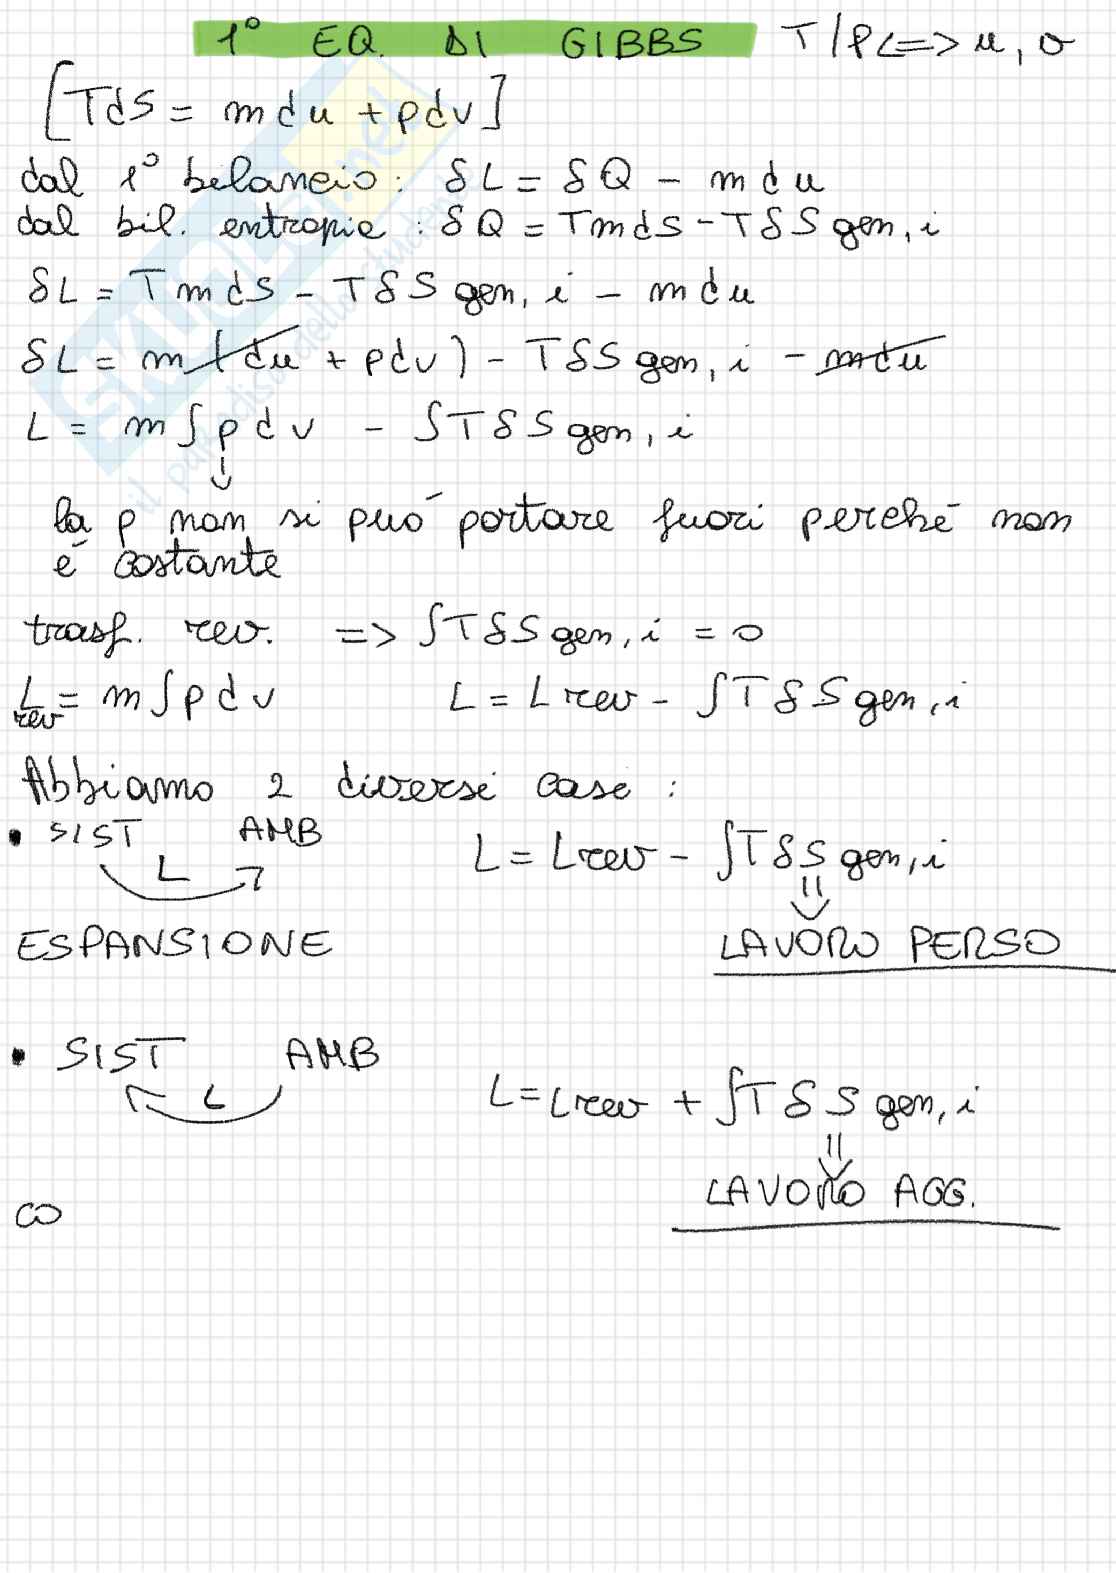 1° EQ. DI GIBBS T/P <=> u, v
[TdS = m du + pdv]
dal 1° bilancio: δL = δQ - m du
dal bil. entropia: δQ = T m dS - T δS gen, i
δL = T m dS - T δS gen, i - m du
δL = m (du + pdv) - T δS gen, i - m du
L = m ∫ p dv - ∫ T δS gen, i
la p non si può portare fuori perché non
é costante
trasf. rev. => ∫ T δS gen, i = 0
L rev = m ∫ p dv L = L rev - ∫ T δS gen, i
Abbiamo 2 diversi casi :
• SIST AMB L = L rev - ∫ T δS gen, i
L
ESPANSIONE LAVORO PERSO
• SIST AMB L = L rev + ∫ T δS gen, i
L
LAVORO AGG.
co
SKUOLA.net
il paradiso dello studente